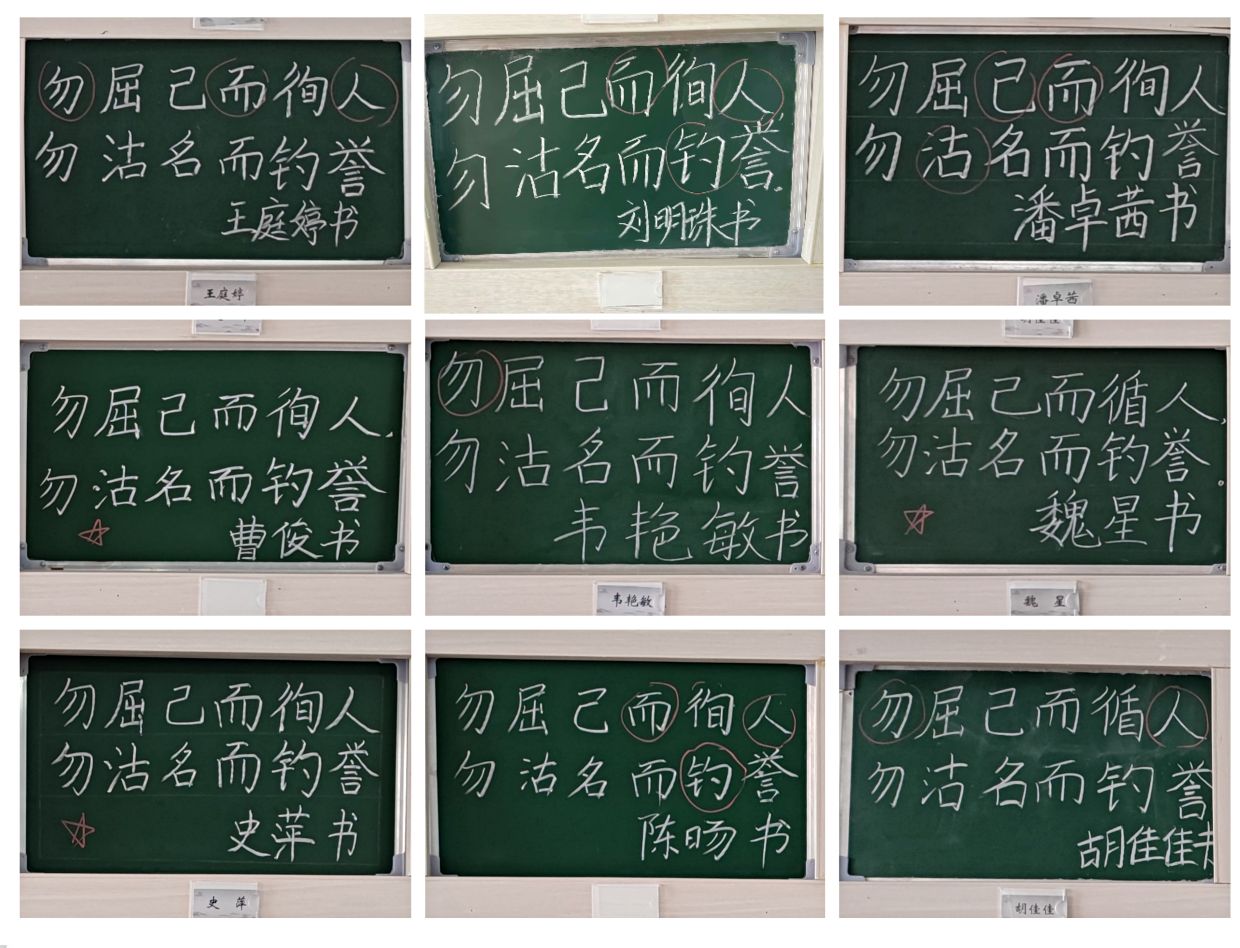 勿屈己而徇人
勿沽名而钓誉
王庭婷书
王庭婷
勿屈己而徇人
勿沽名而钓誉.
刘明珠书
勿屈己而徇人
勿沽名而钓誉
潘卓茜书
潘卓茜
勿屈己而徇人,
勿沽名而钓誉
曹俊书
勿屈己而徇人
勿沽名而钓誉
韦艳敏书
韦艳敏
胡佳佳
勿屈己而循人,
勿沽名而钓誉。
魏星书
魏 星
勿屈己而徇人
勿沽名而钓誉
史萍书
史 萍
勿屈己而徇人
勿沽名而钓誉
陈旸书
勿屈己而循人
勿沽名而钓誉
胡佳佳书
胡佳佳